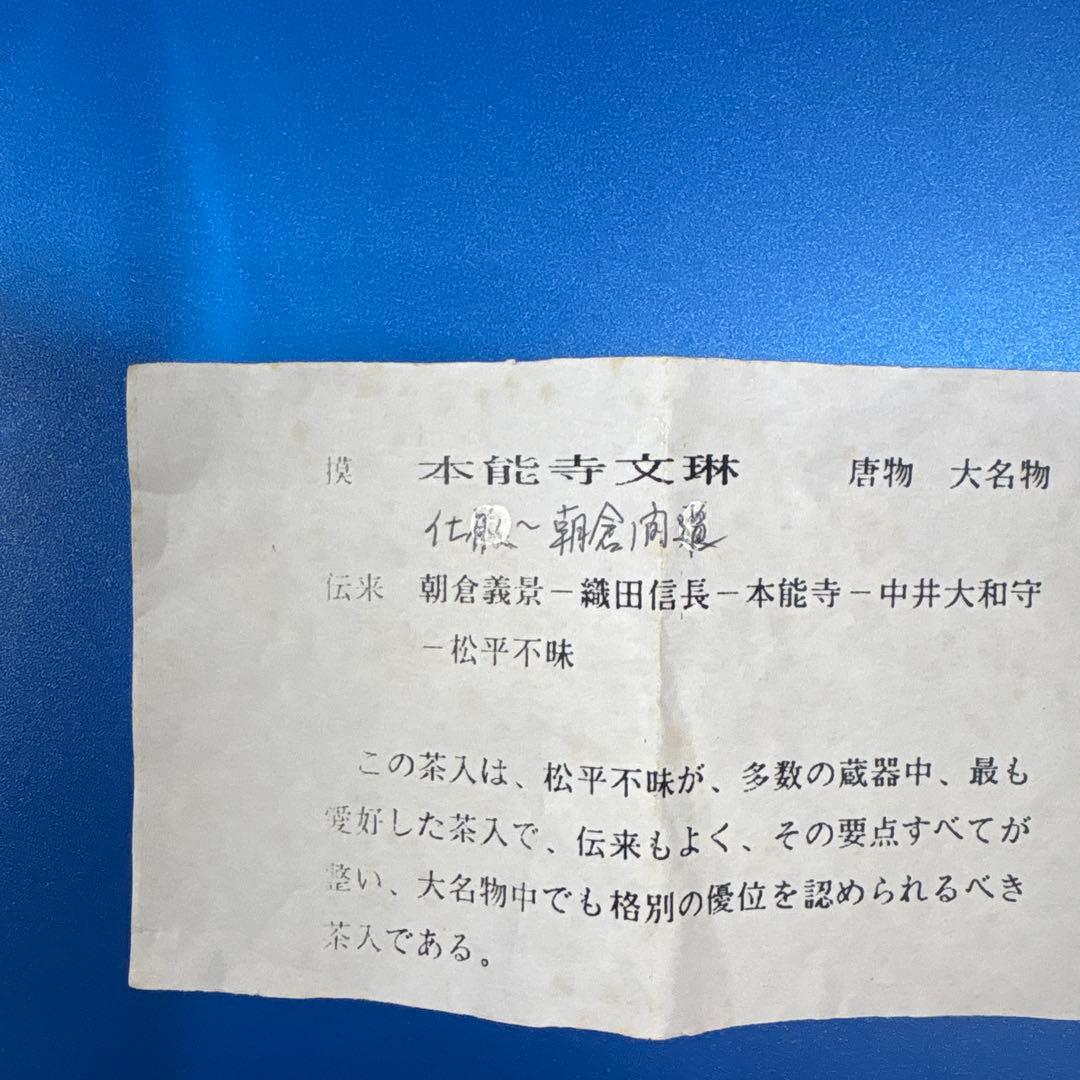 摸 本能寺文琳 唐物 大名物
仕服~朝倉間道
伝来 朝倉義景－織田信長－本能寺－中井大和守
－松平不昧
この茶入は、松平不昧が、多数の蔵器中、最も
愛好した茶入で、伝来もよく、その要点すべてが
整い、大名物中でも格別の優位を認められるべき
茶入である。